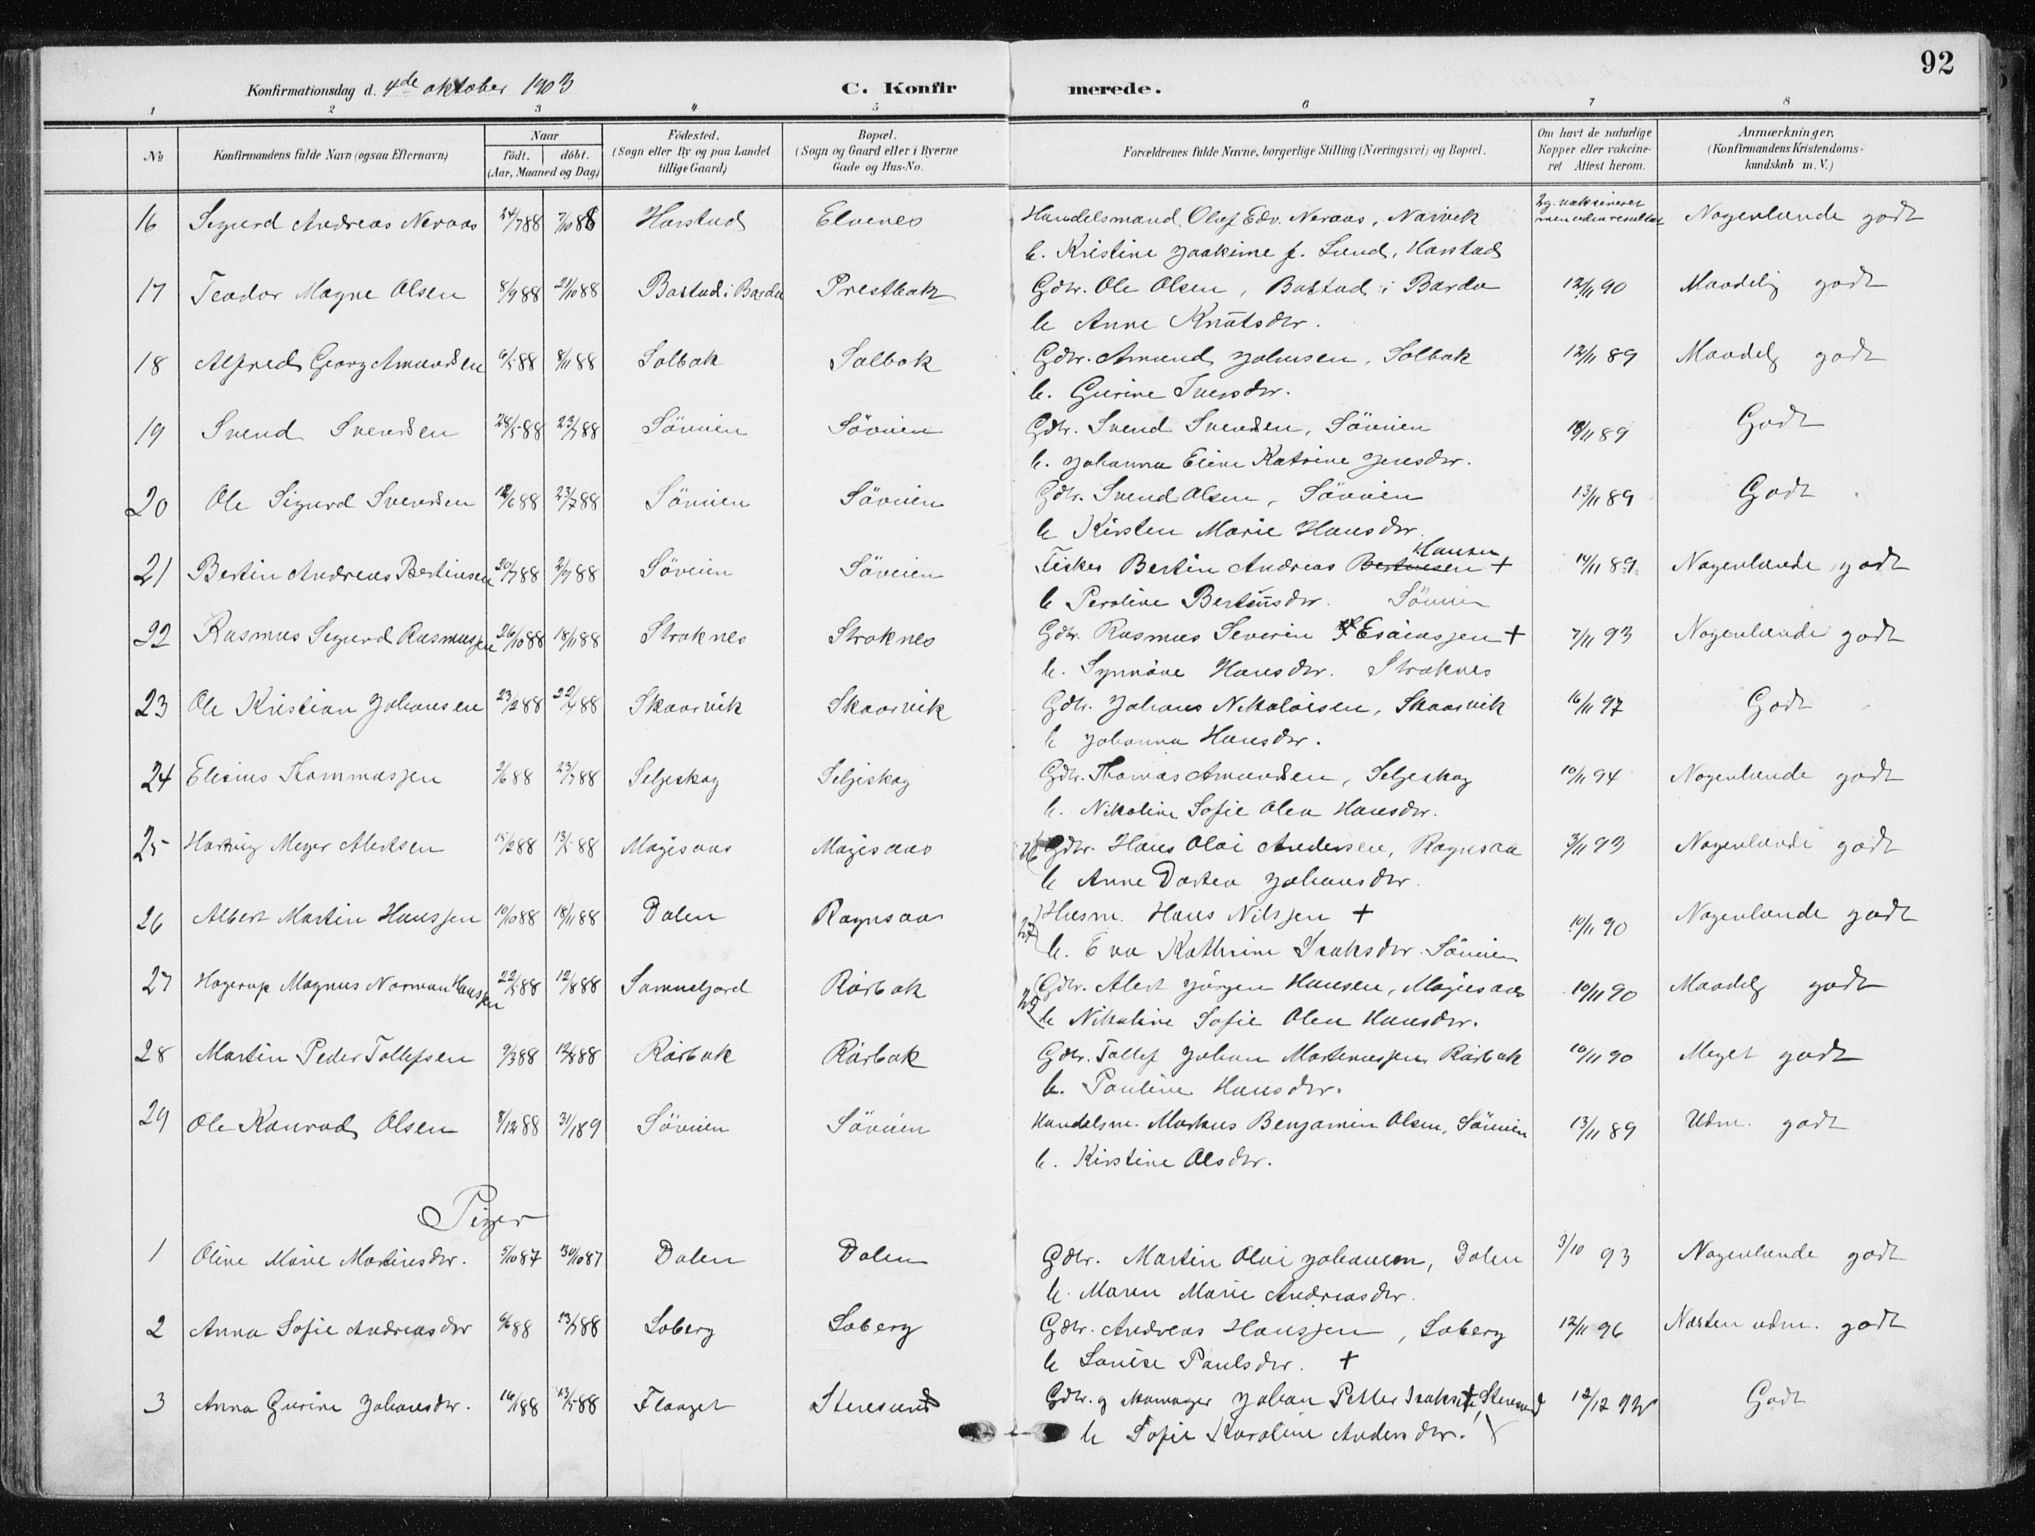 92
Konfirmationsdag d. 4de oktober 1903 C. Konfirmerede.
1 2 3 4 5 6 7 8
No Konfirmandens fulde Navn (ogsaa Efternavn) Naar födt. döbt. (Aar, Maaned og Dag) Födested. (Sogn eller By og paa Landet tillige Gaard) Bopæl. (Sogn og Gaard eller i Byerne Gade og Hus-No. Forældrenes fulde Navne, borgerlige Stilling (Næringsvei) og Bopæl. Om havt de naturlige Kopper eller vakcineret. Attest herom. Anmærkninger. (Konfirmandens Kristendomskundskab m. V.)
16 Sigurd Andreas Neraas 24/7 88 7/10 88 Harstad Elvenes Handelsmand Olaf Edv. Neraas, Narvik men uden resultat Nogenlunde godt
h. Kristine Joakime f. Lund, Harstad
17 Teodor Magne Olsen 8/9 88 21/10 88 Bastad i Bardu Prestbak Gdbr. Ole Olsen, Bastad i Bardu 12/11 90 Maadelig godt
h. Anne Knutsdtr.
18 Alfred Georg Amundsen 6/5 88 8/11 88 Solbak Solbak Gdbr. Amund Johnsen, Solbak 12/11 89 Maadelg godt
h. Gurine Iversdtr.
19 Svend Svendsen 28/5 88 23/7 88 Söveien Söveien Gdbr. Svend Svendsen, Söveien 89 Godt
h. Johanna Eline Katrine Jensdtr.
20 Ole Sigurd Svendsen 12/6 88 23/7 88 Söveien Söveien Gdbr. Svend Olsen, Söveien 13/11 89 Godt
h. Kirsten Marie Hansdtr.
21 Bertin Andreas Bertinsen 20/7 88 2/9 88 Söveien Söveien Fisker Bertin Andreas Bertinsen Hansen + 14/11 89 Nogenlunde godt
h. Peroline Bertinsdtr. Söveien
22 Rasmus Sigurd Rasmussen 26/10 88 18/11 88 Straknes Straknes Gdbr. Rasmus Severin Esaiassen + 7/11 93 Nogenlunde godt
h. Synnöve Hansdtr. Straknes
23 Ole Kristian Johansen 23/2 88 22/4 88 Skaarvik Skaarvik Gdbr. Johans Nikolaisen, Skaarvik 16/11 97 Godt
h. Johanna Hansdtr.
24 Elisius Thommassen 2/6 88 23/7 88 Seljeskog Seljeskog Gdbr. Thomas Amundsen, Seljeskog 10/11 94 Nogenlunde godt
h. Nikoline Sofie Olea Hansdtr.
25 Hartvig Meyer Alertsen 15/2 88 13/5 88 Mojesaas Mojesaas 26 Gdbr. Hans Olai Andersen, Ragnsaa 3/11 93 Nogenlunde godt
h. Anne Dortea Johansdtr.
26 Albert Martin Hanssen 10/10 88 18/11 88 Dalen Ragnsaas 27 Husm. Hans Nilssen + 10/11 90 Nogenlunde godt
h. Eva Kathrine Isaksdtr. Söveien
27 Hagerup Magnus Norman Hanssen 22/5 88 12/8 88 Rörbak 25 Gdbr. Alert Jörgen Hansen, Mojesaas 10/11 90 Maadelg godt
h. Nikoline Sofie Olea Hansdtr.
28 Martin Peder Tollefsen 9/3 88 12/8 88 Rörbak Rörbak Gdbr. Tollef Johan Martinussen, Rörbak 10/11 90 Meget godt
h. Pauline Hansdtr.
29 Ole Konrad Olsen 8/12 88 31/1 89 Söveien Söveien Handelsm. Markus Benjamin Olsen, Söveien 13/11 89 Udm. godt
h. Kirstine Olsdtr.
Piger
1 Oline Marie Martinsdtr. 5/10 87 30/10 87 Dalen Dalen Gdbr. Martin Olai Johansen, Dalen 3/10 93 Nogenlunde godt
h. Maren Marie Andreasdtr.
2 Anna Sofie Andreasdtr 6/6 88 23/7 88 Soberg Soberg Gdbr. Andreas Hanssen, Soberg 12/11 96 Næsten udm. godt
h. Lovise Paulsdtr. +
3 Anna Gurine Johansdtr. 16/1 88 13/5 88 Flaaget Steresund Gdbr. g Johan Petter Isaksen + Steresund 12/12 92 Godt
h. Sofie Karoline Andersdtr.